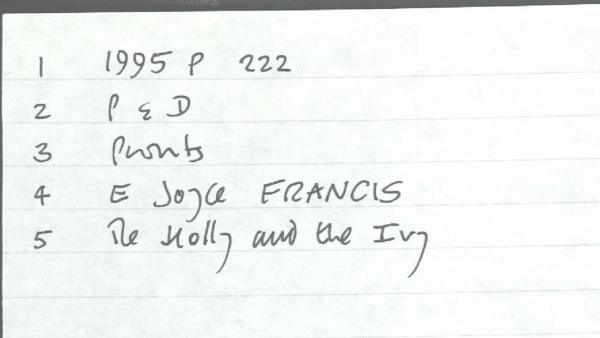 1 1995 P 222
2 P & D
3 Prints
4 E Joyce FRANCIS
5 The Holly and the Ivy